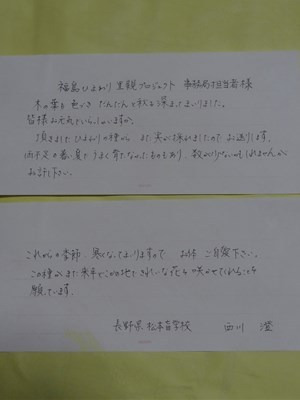 福島ひまわり里親プロジェクト 事務局担当者様
木の葉も色づき だんだんと秋も深まってまいりました。
皆様お元気でいらっしゃいますか。
頂きましたひまわりの種から また実が採れましたのでお送りします。
雨不足の暑い夏でうまく育たなかったものもあり、数が少ないかもしれませんが
お許し下さい。
これからの季節、寒くなってまいりますので、お体ご自愛下さい。
この種がまた来年どこかの地できれいな花を咲かせてくれることを
願っています。
長野県 松本盲学校 西川 澄